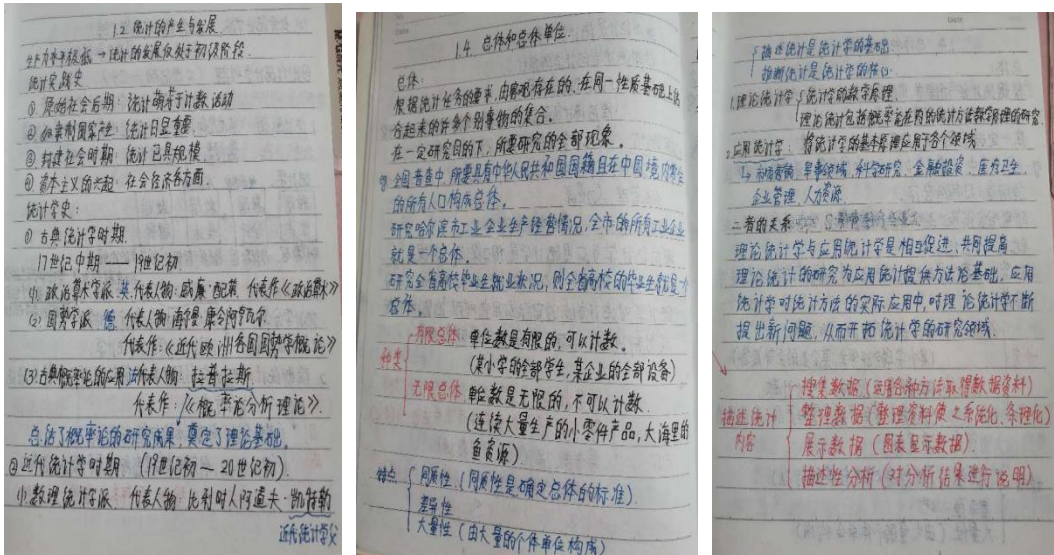 1.2. 统计的产生与发展.
生产力水平极低 → 统计的发展仅处于初级阶段.
统计实践史
① 原始社会后期: 统计萌芽于计数活动
② 奴隶制国家产生: 统计日显重要.
③ 封建社会时期: 统计已具规模
④ 资本主义的兴起: 社会经济各方面.
统计学史:
① 古典统计学时期.
17世纪中期 —— 19世纪初
(1). 政治算术学派 英.代表人物: 威廉·配第 代表作《政治算术》
(2) 国势学派 德 代表人物: 海曼·康令 阿亨瓦尔.
代表作:《近代欧洲各国国势学概论》
(3) 古典概率论的应用 法代表人物: 拉普拉斯
代表作:《概率论分析理论》.
总结了概率论的研究成果, 奠定了理论基础.
② 近代统计学时期 (19世纪初 — 20世纪初).
(1).数理统计学派 代表人物: 比利时人阿道夫·凯特勒
近代统计学父
1.4. 总体和总体单位.
总体:
根据统计任务的要求, 由客观存在的、在同一性质基础上结
合起来的许多个别事物的集合。
在一定研究目的下, 所要研究的全部现象.
全国普查中, 所要具有中华人民共和国国籍且在中国境内常住
的所有人口构成总体。
研究哈尔滨市工业企业生产经营情况, 全市的所有工业企业
就是一个总体。
研究全省高校毕业生就业状况, 则全省高校的毕业生就是一个
总体.
种类
有限总体: 单位数是有限的, 可以计数。
(某小学的全部学生, 某企业的全部设备)
无限总体: 单位数是无限的, 不可以计数.
(连续大量生产的小零件产品, 大海里的
鱼资源)
特点
同质性. (同质性是确定总体的标准)
差异性
大量性 (由大量的个体单位构成)
描述统计是统计学的基础
推断统计是统计学的核心.
1.理论统计学 统计学的数学原理.
理论统计包括概率论在内的统计方法数学原理的研究.
2.应用统计学: 将统计学的基本原理应用于各个领域
市场营销、军事领域、科学研究、金融投资、医药卫生
企业管理、人力资源.
二者的关系
理论统计学与应用统计学是相互促进, 共同提高
理论统计的研究为应用统计提供方法论基础, 应用
统计学对统计方法的实际应用中, 对理论统计学不断
提出新问题, 从而开拓统计学的研究领域.
描述统计
内容
搜集数据 (运用各种方法取得数据资料)
整理数据 (整理资料使之系统化、条理化)
展示数据 (图表显示数据).
描述性分析 (对分析结果进行说明)